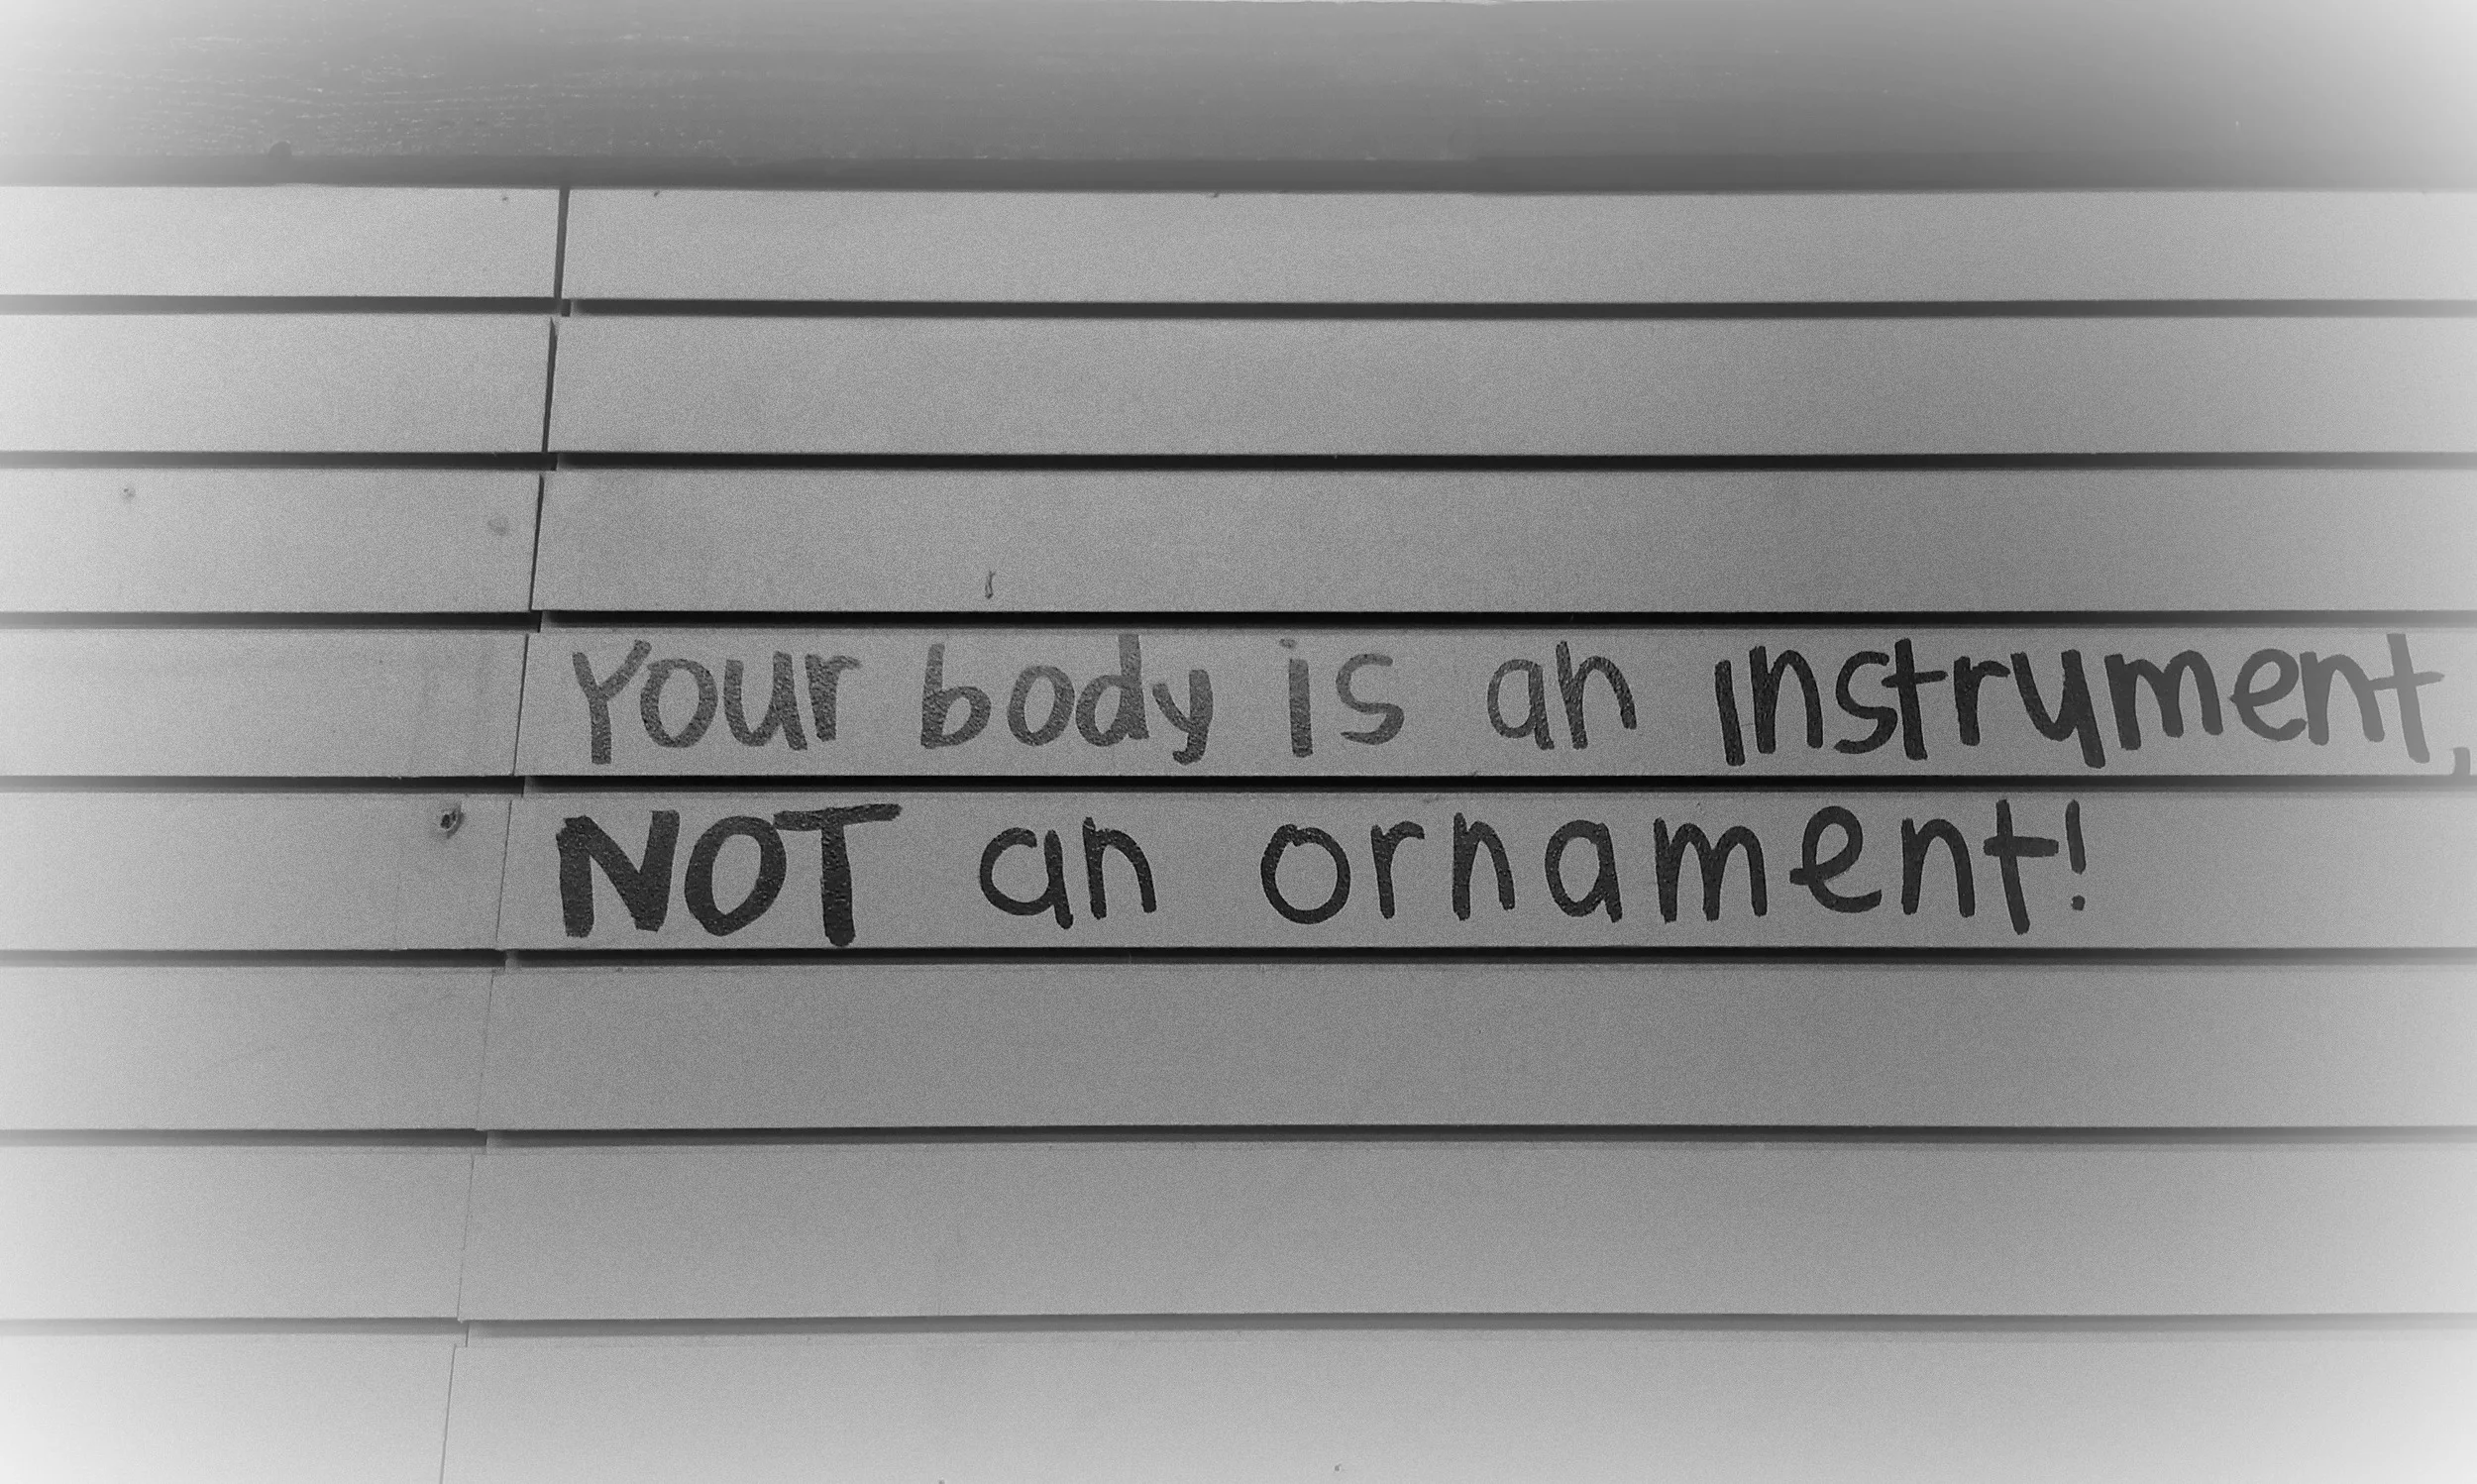 Your body is an instrument,
NOT an ornament!